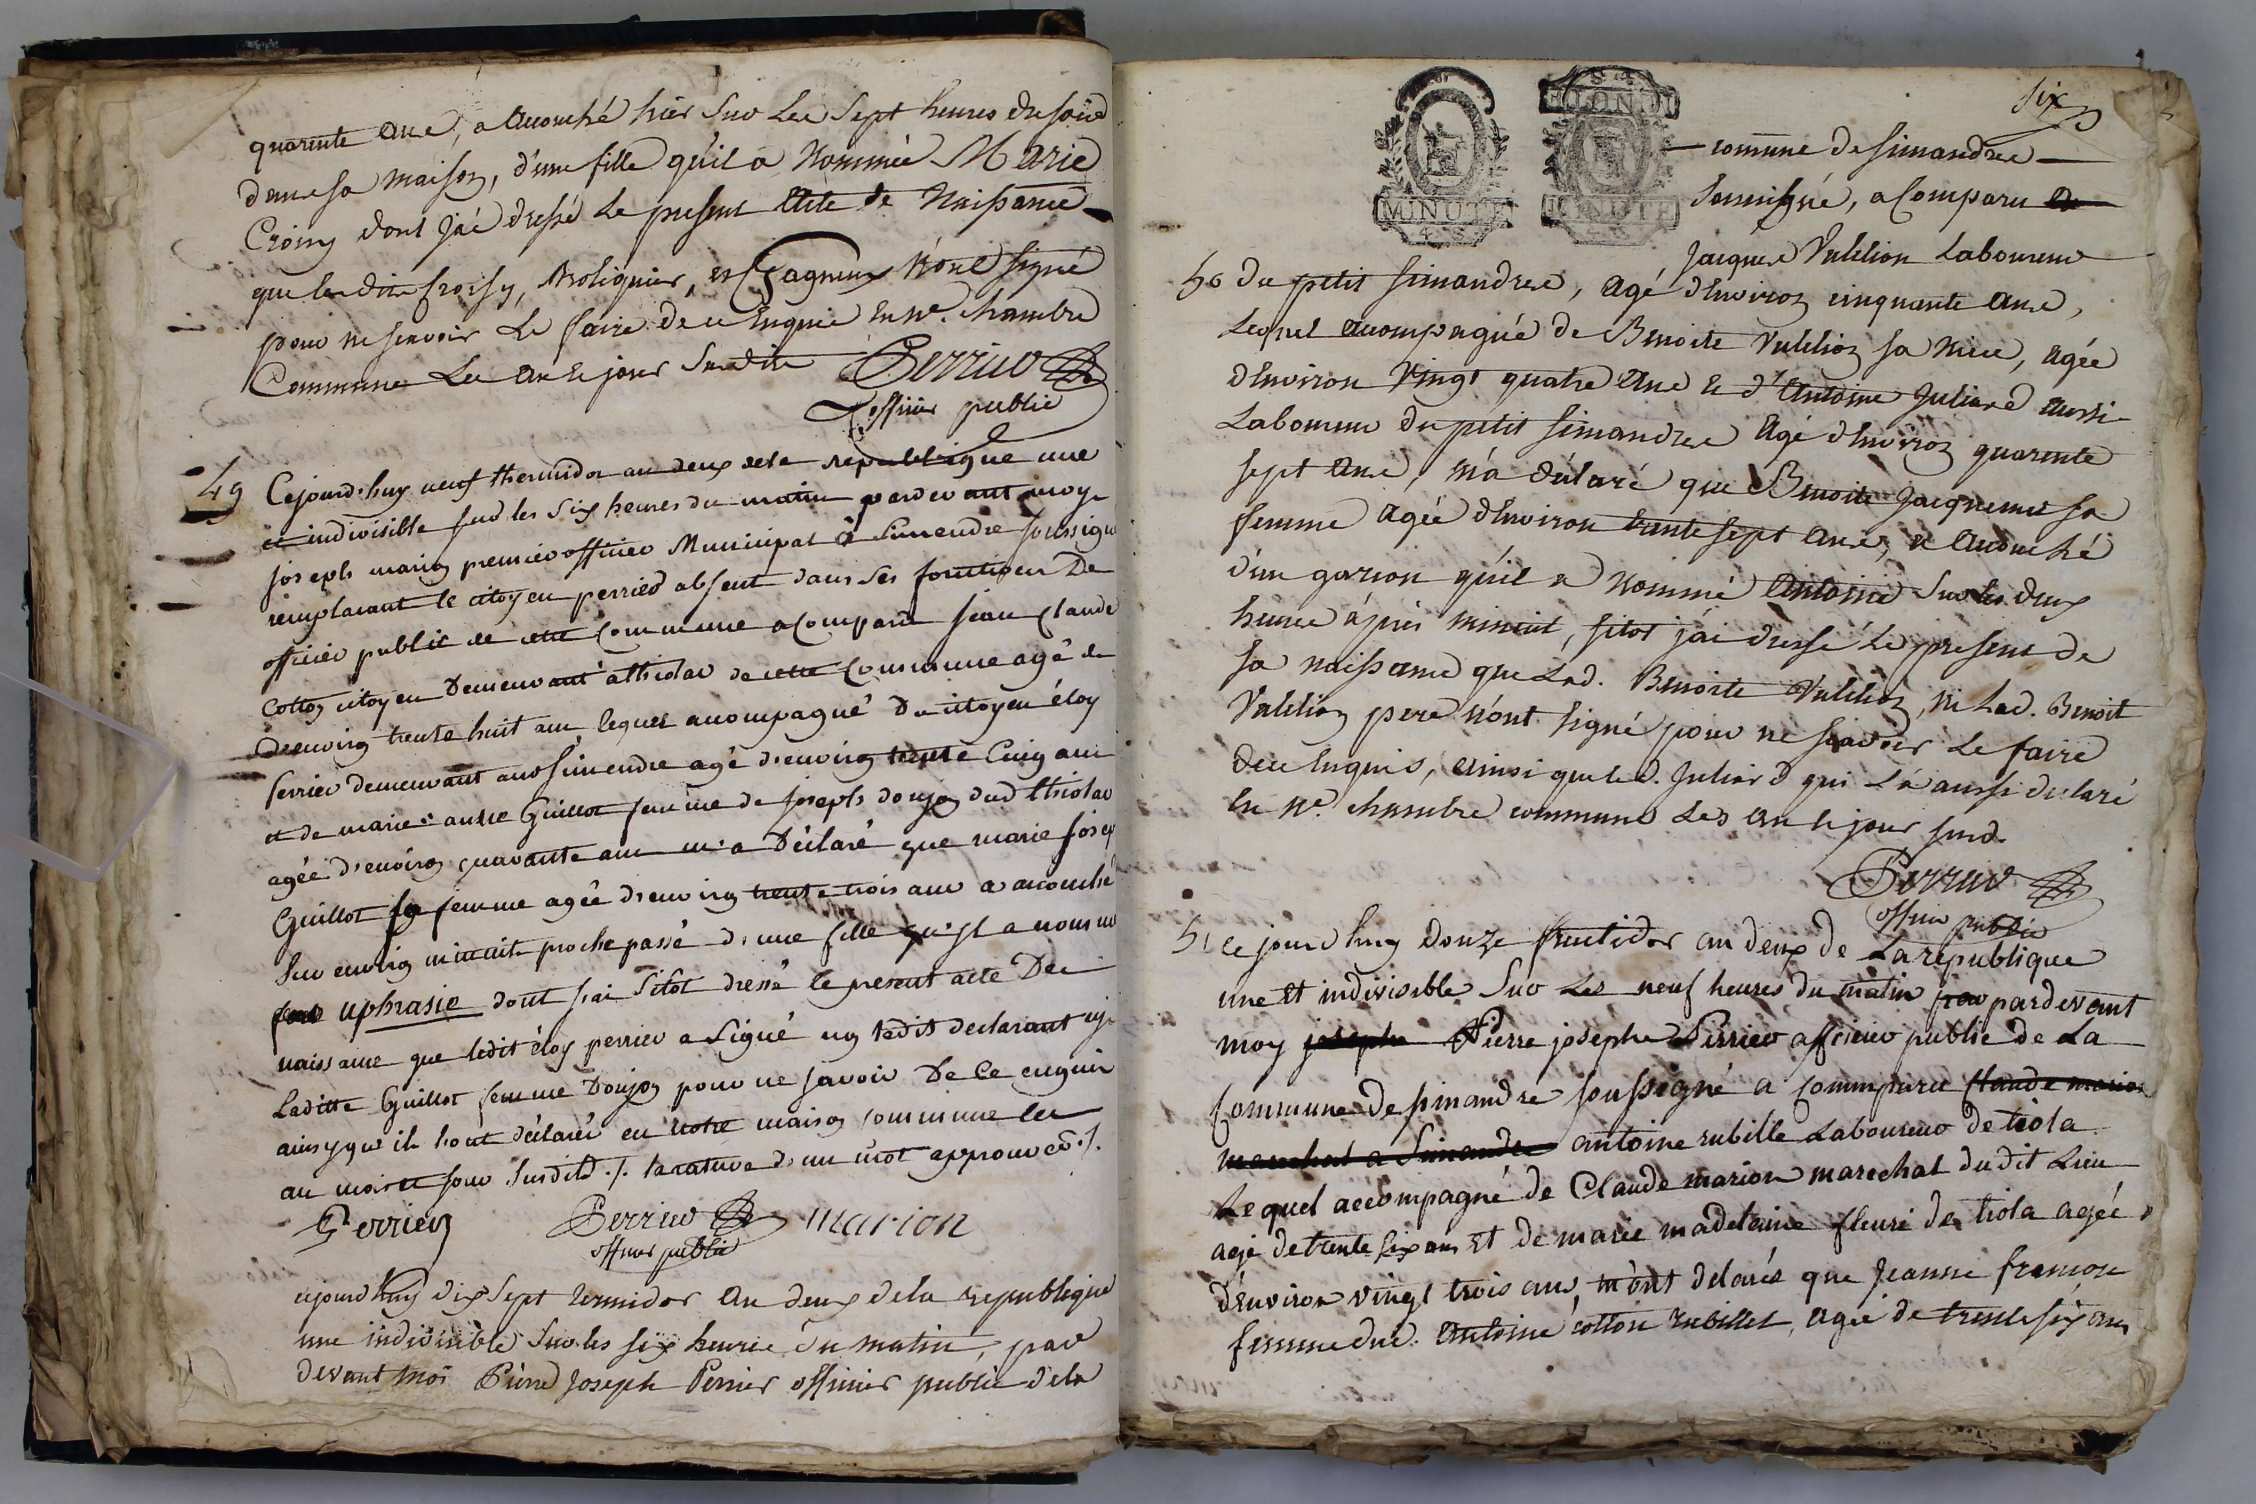 quarente ans, a acouché hier sur les sept heures du soir
dans sa maison, d'une fille qu'il a nommée Marie
dont j'ai dressé le present acte de naissance
que lesdits n'ont signé
pour ne scavoir le faire de ce enquis en ne. chambre
commune les an et jour susdits Perrier
officier public
49
Cejourd'huy neuf thermidor an deux de la republique une
et indivisible sur les six heures du matin pardevant moy
joseph marion premier officier Municipal à Simendre soussigné
remplacant le citoyen perrier absent dans ses fonctions De
officier public de cette commune a comparu jean claude
cotton citoyen Demeurant a thiolas de cette commune agé de
denviron trente huit ans lequel acompagné Du citoyen éloy
perrier demeurant aud simendre agé d'environ trente cinq ans
et de marie Guillot femme de joseph donjon dud thiolas
agée d'environ quarante ans m'a Déclaré que marie josep
Guillot sa femme agée d'environ trente trois ans a acouché
sur environ minuit proche passé d'une fille qu'il a nommé
uphrasie dont j'ai sitot dressé le present acte De
naissance que ledit éloy perrier a signé ledit declarant ny
Laditte Guillot femme Donjon pour ne savoir De ce enquis
ainsy que ils l'ont déclaré en notre maison commune les
an mois et jour susdits ./. la rature d'un mot approuvé ./.
Perrier Perrier marion
officier public
cejourd'huy dix sept termidor an deux de la republique
une indivisible sur les six heures du matin, par
devant moi Pierre Joseph Perrier officier public de la
six
MINUTE
4. S.
MINUTE
commune de simandres
soussigné, a comparu
Jacques Vallion Laboureur
50 du petit simandres, agé d'environ cinquante ans,
Lequel acompagné de Benoite Vallion sa niece, agée
d'environ vingt quatre ans et d'Antoine Juliard aussi
Laboureur du petit simandres agé d'environ quarente
sept ans, m'a déclaré que Benoite Jacquemet sa
femme agée d'environ trente sept ans, a acouché
d'un garcon qu'il a nommé Antoine sur les deux
heures après minuit, sitot j'ai dressé le present de
sa naissance que lad. Benoite Vallion, ni led. Benoit
Vallion pere n'ont signé pour ne scavoir le faire
de ce enquis, ainsi que led. Juliard qui l'a aussi déclaré
en ne. chambre commune les an et jour susd.
Perrier
officier public
51 ce jourd huy douze fructidor an deux de La republique
une et indivisible sur les neuf heures du matin pardevant
moy joseph Pierre joseph Perrier officier public de La
commune de simandre soussigné a comparu Claude marion
marechal a Simandre antoine rubille Laboureur de tiola
Lequel accompagné de Claude marion marechal du dit Lieu
agé de trente six ans et de marie madelaine fleuri de tiola agée
d'environ vingt trois ans, m'ont delarés que Jeanne francon
femme dud. Antoine cotton rubillet, agée de trente six ans